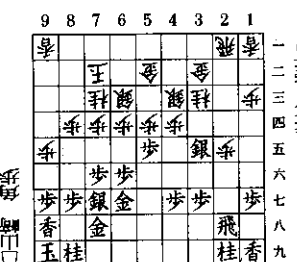 9 8 7 6 5 4 3 2 1
香 飛 香 一
王 金 金 二
桂 銀 銀 桂 歩 三
歩 歩 歩 歩 歩 四
歩 歩 銀 歩 五
歩 歩 六
歩 歩 銀 金 歩 歩 歩 七
香 金 飛 八
玉 桂 桂 香 九
山崎 角歩